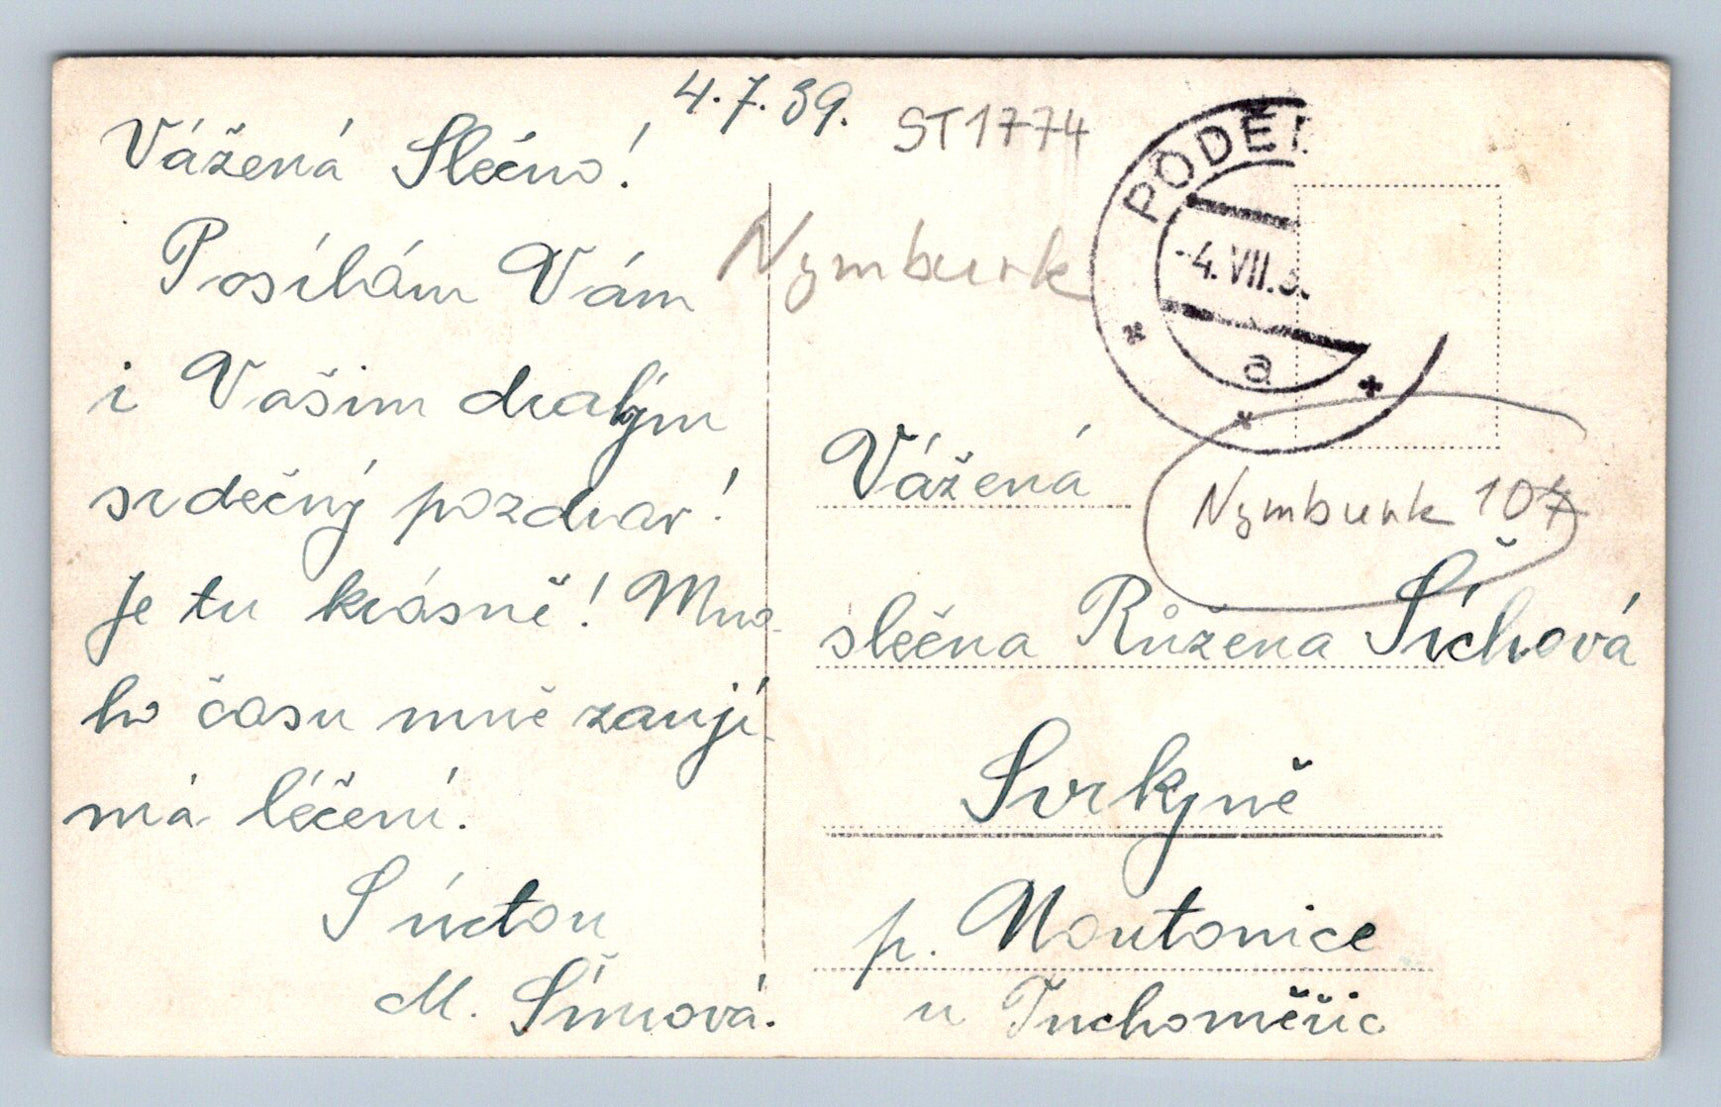 4.7.39.
ST1774
Vážená Slečno!
Posílám Vám
i Vašim drahým
srdečný pozdrav!
Je tu krásně! Mno-
ho času mně zaují-
má léčení.
S úctou
M. Šímová.
Nymburk
PODĚ
-4.VII.3
a
Nymburk 104
Vážená
slečna Růžena Šíchová
Svrkyně
p. Noutonice
u Tuchoměřic